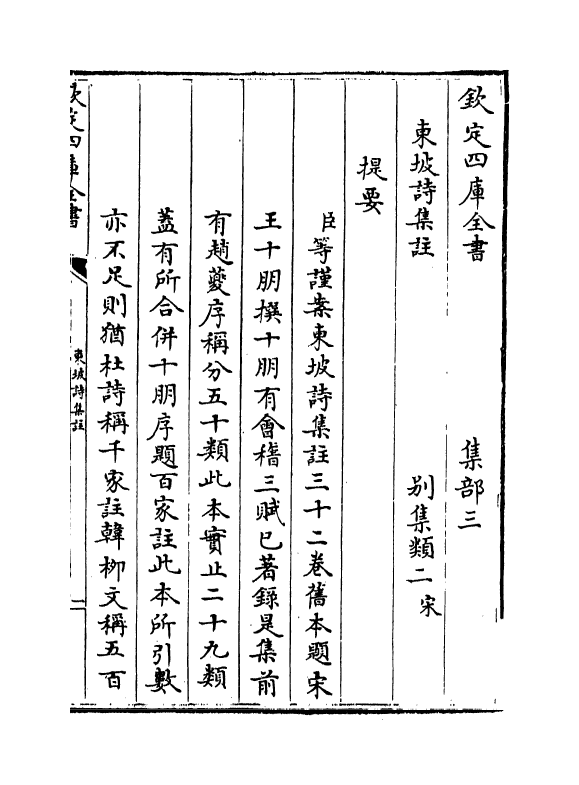 欽定四庫全書　集部三
東坡詩集註　別集類二宋
提要
臣等謹案東坡詩集註三十二卷舊本題宋
王十朋撰十朋有會稽三賦已著錄是集前
有趙夔序稱分五十類此本實止二十九類
蓋有所合併十朋序題百家註此本所引數
亦不足則猶杜詩稱千家註韓柳文稱五百
欽定四庫全書
東坡詩集註